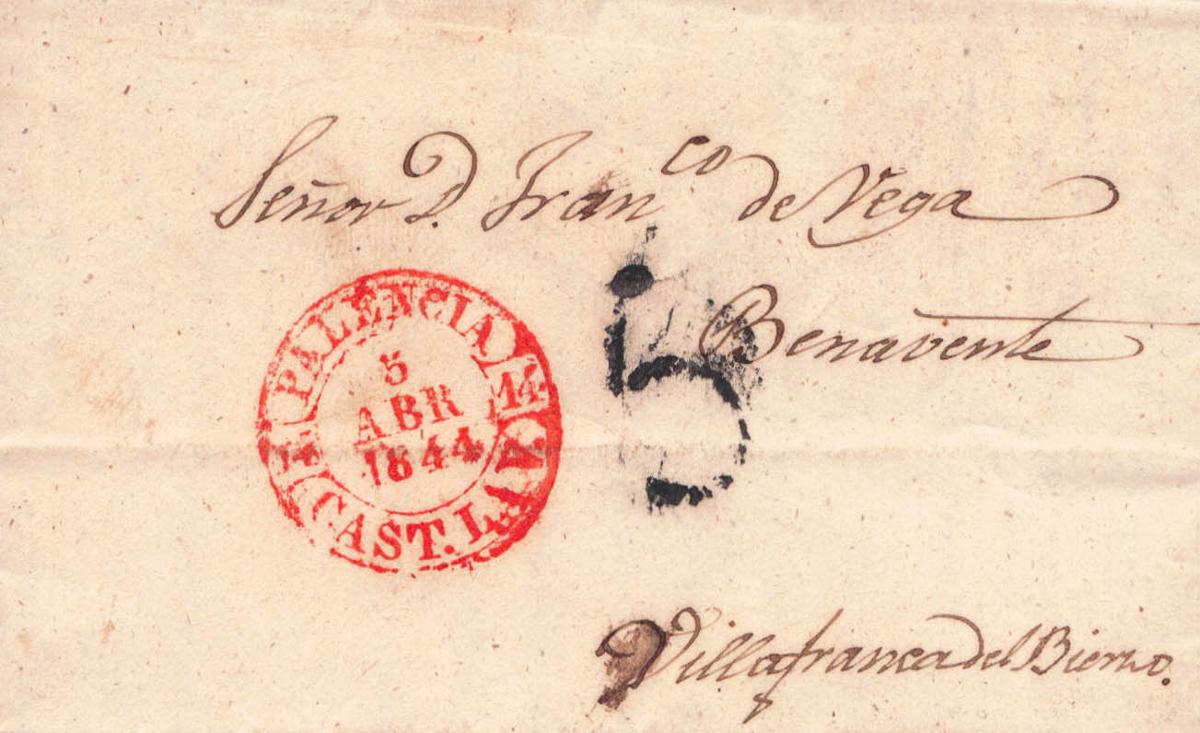 Señor D. Fran.co de Vega
Benavente
PALENCIA 14
5
ABR
1844
CAST. LA V.
5
Villafranca del Bierzo.